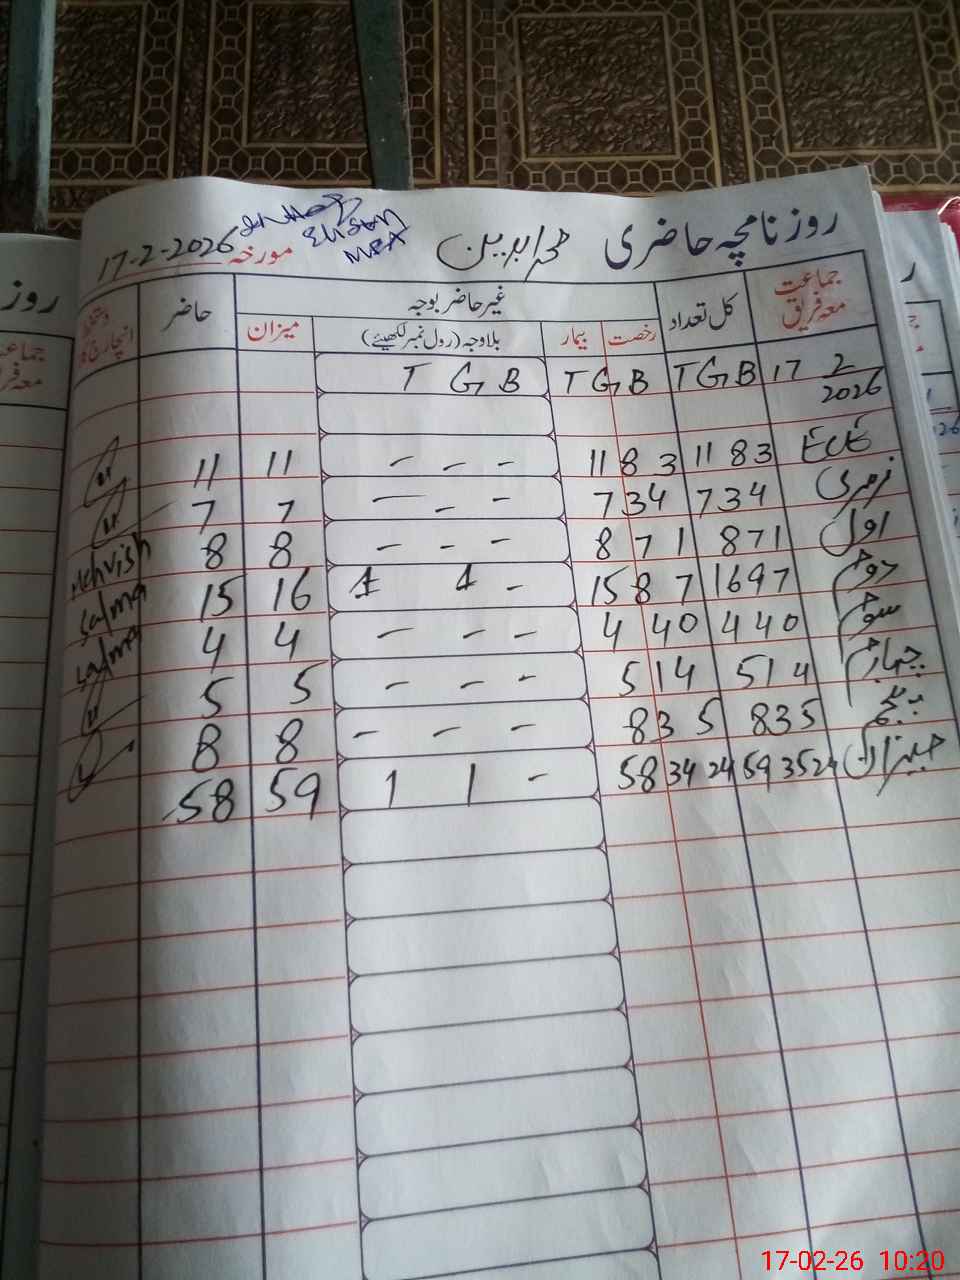 روزنامچہ حاضری
مورخہ 17-2-2026
جماعت معہ فریق
کل تعداد
غیر حاضر بوجہ
حاضر
دستخط انچارج
رخصت
بیمار
بلاوجہ (رول نمبر لکھیئے)
میزان
17 2 2026
T G B T G B T G B
ECE 11 8 3 11 8 3 - - - 11 11
نرسری 7 3 4 7 3 4 - - - 7 7
اول 8 7 1 8 7 1 - - - 8 8 Mehvish
دوم 16 9 7 15 8 7 1 1 - 16 15 Salma
سوم 4 4 0 4 4 0 - - - 4 4 Salma
چہارم 5 1 4 5 1 4 - - - 5 5
پنجم 8 3 5 8 3 5 - - - 8 8
میزان 59 35 24 58 34 24 1 1 - 59 58
روز
جماعت
معہ فریق
17-02-26 10:20